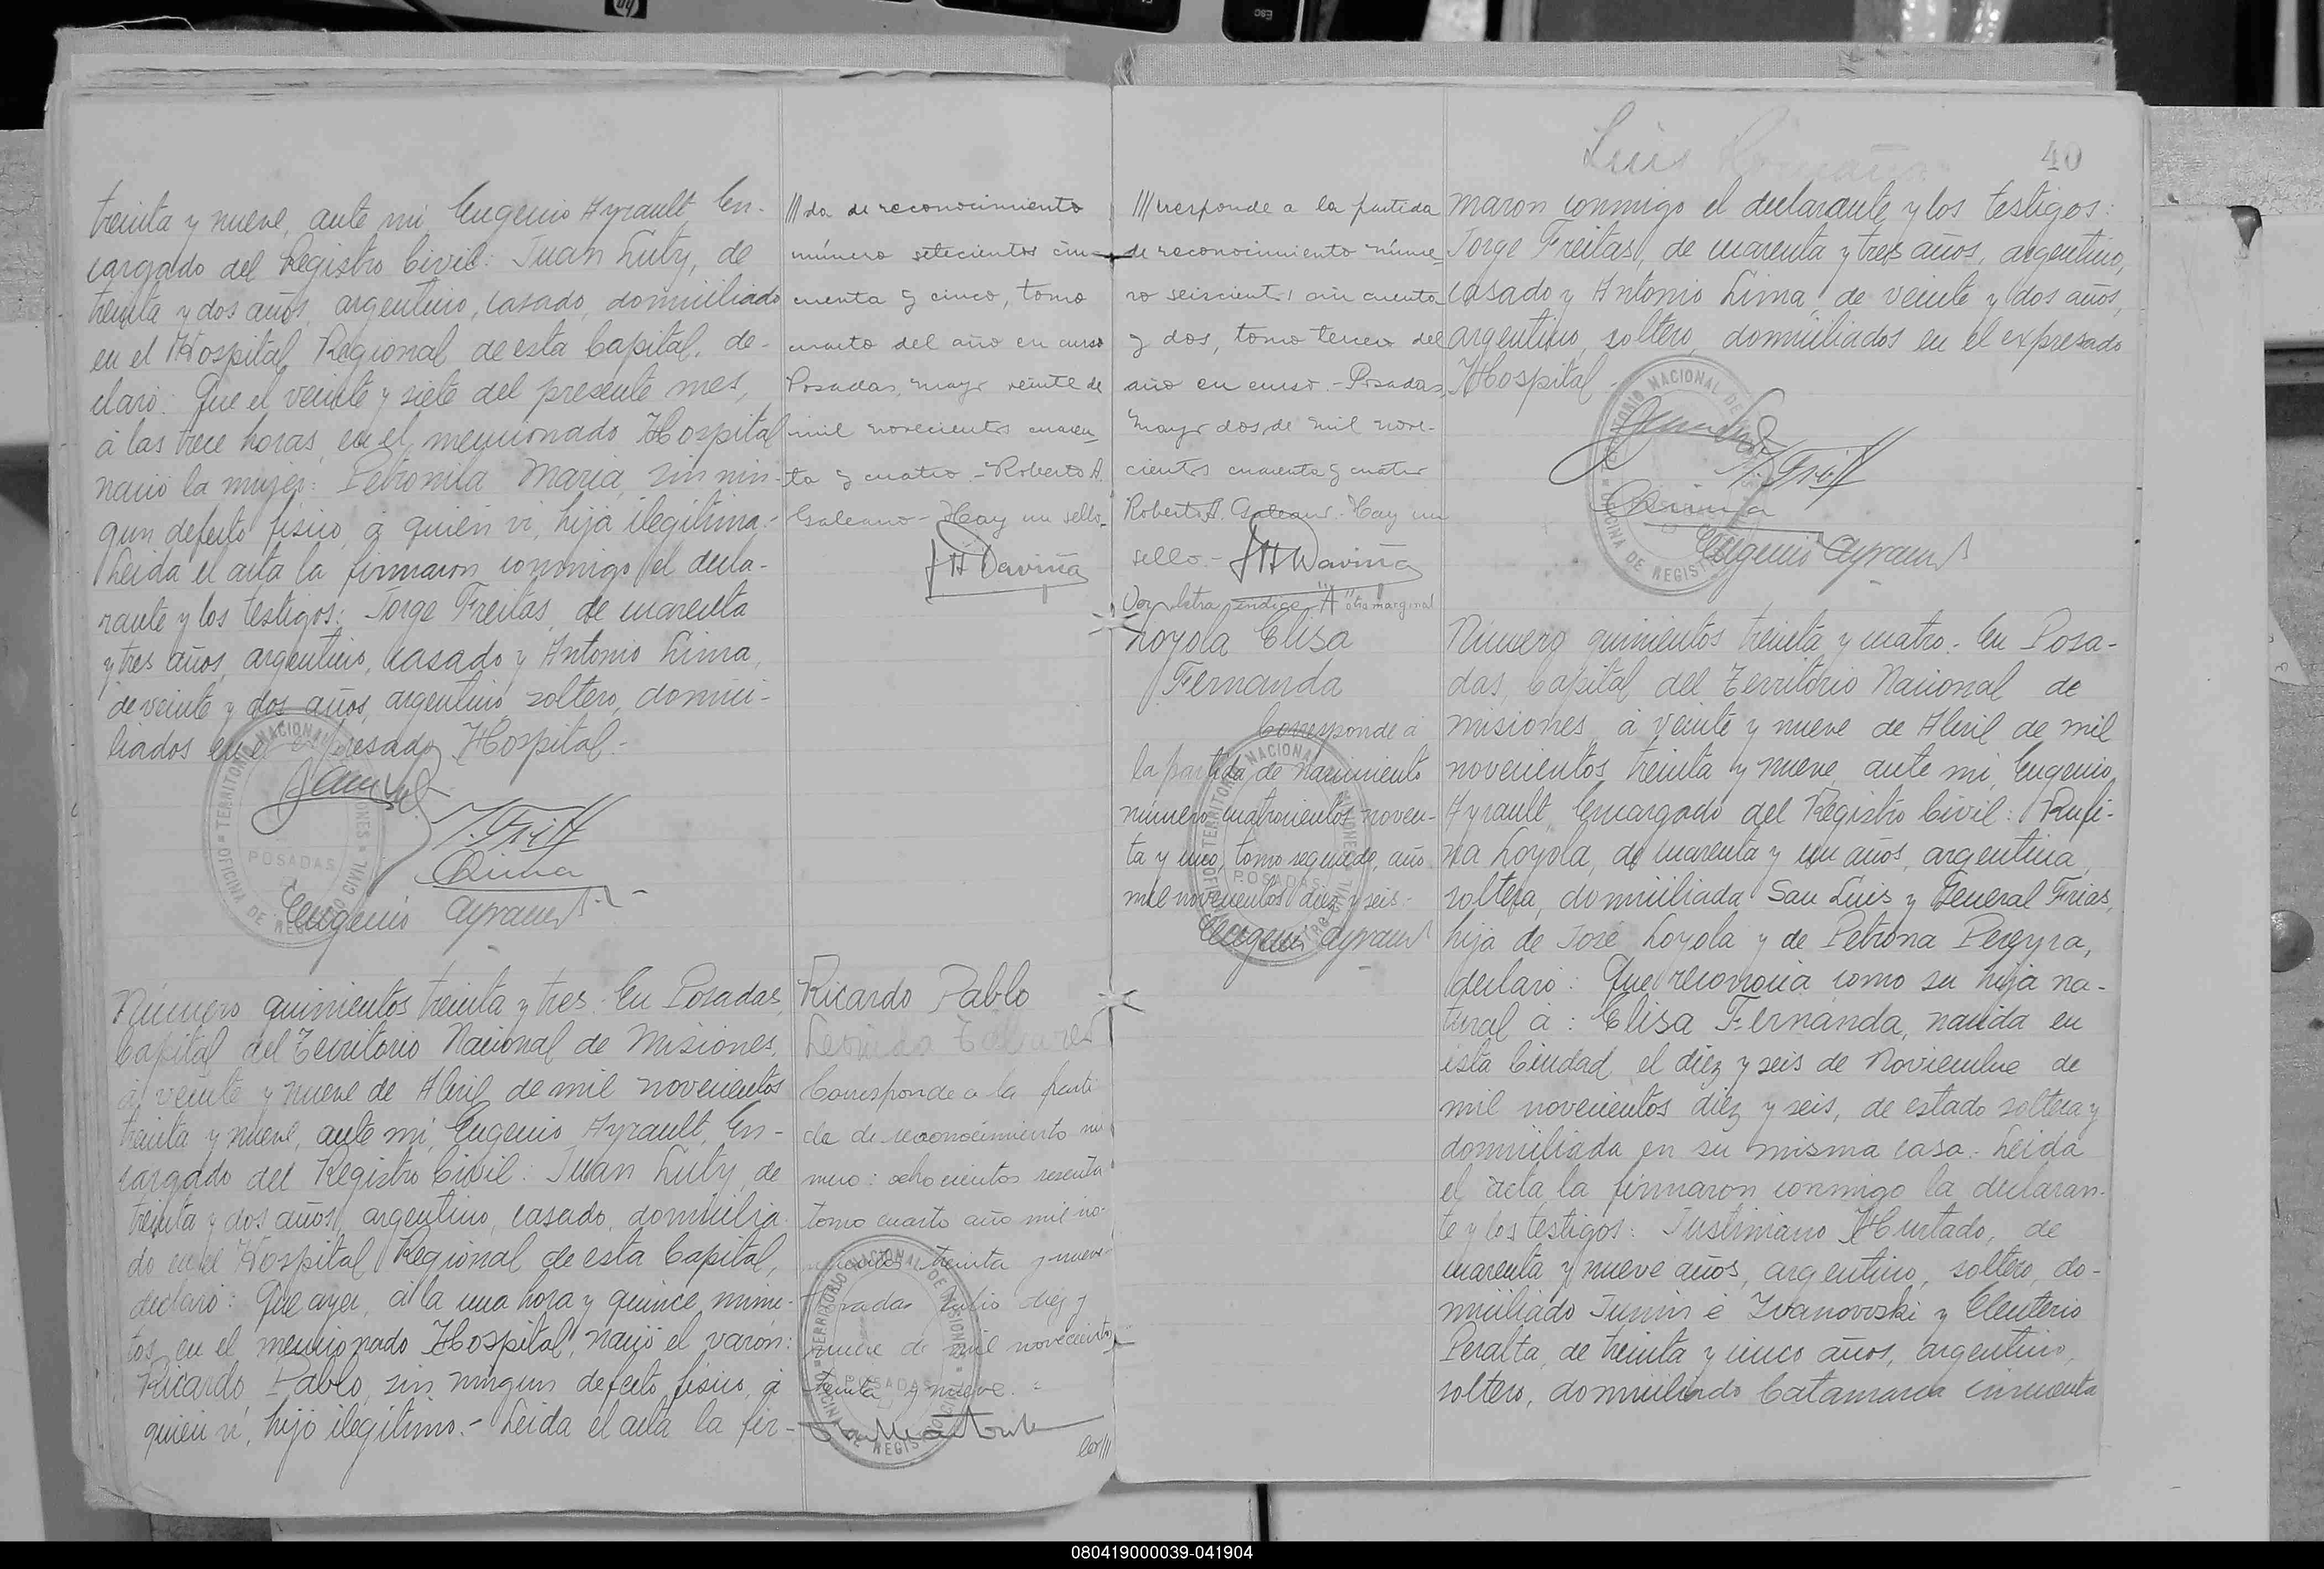 treinta y nueve, ante mi, Eugenio Ayrault, En-
cargado del Registro Civil: Juan Luty, de
treinta y dos años, argentino, casado, domiciliado
en el Hospital Regional de esta Capital, de-
claró: Que el veinte y siete del presente mes,
á las trece horas, en el mencionado Hospital
nació la mujer: Petronila Maria, sin nin-
gun defecto fisico, á quien vi, hija ilegitima.-
Leida el acta la firmaron conmigo el decla-
rante y los testigos: Jorge Freitas, de cuarenta
y tres años, argentino, casado y Antonio Lima,
de veinte y dos años, argentino soltero, domici-
liados en el expresado Hospital.-
J. Freitf
Lima
Eugenio Ayrault
Número quinientos treinta y tres. En Posadas,
Capital del Territorio Nacional de Misiones,
á veinte y nueve de Abril de mil novecientos
treinta y nueve, ante mi, Eugenio Ayrault, En-
cargado del Registro Civil: Juan Luty, de
treinta y dos años, argentino, casado, domicilia-
do en el Hospital Regional de esta Capital,
declaró: Que ayer, á la una hora y quince minu-
tos, en el mencionado Hospital, nació el varón:
Ricardo Pablo, sin ningun defecto fisico, á
quien vi, hijo ilegitimo.- Leida el acta la fir-
///da de reconocimiento
número setecientos cin-
cuenta y cinco, tomo
cuarto del año en curso
Posadas, mayo veinte de
mil novecientos cuaren-
ta y cuatro - Roberto A.
Galeano - Hay un sello.-
J H Daviña
Ricardo Pablo
Corresponde a la parti
da de reconocimiento nú
mero: ochocientos sesenta
tomo cuarto año mil no-
vecientos treinta y nueve
Posadas Julio diez y
nueve de mil novecientos
treinta y nueve. -
Cor///
TERRITORIO NACIONAL DE MISIONES
OFICINA DE REGISTRO CIVIL
POSADAS
///rresponde a la partida
de reconocimiento núme-
ro seiscientos cincuenta
y dos, tomo tercero del
año en curso. - Posadas,
Mayo dos de mil nove-
cientos cuarenta y cuatro
Roberto A. Galeano - Hay un
sello. - J H Daviña
Ver letra indice "A" otra marginal
Loyola Elisa
Fernanda
Corresponde á
la partida de nacimiento
número cuatrocientos noven-
ta y uno, tomo segundo, año
mil novecientos diez y seis.-
Eugenio Ayrault
Luis
40
maron conmigo el declarante y los testigos:
Jorge Freitas, de cuarenta y tres años, argentino,
casado y Antonio Lima, de veinte y dos años,
argentino, soltero, domiciliados en el expresado
Hospital.-
J. Freitf
Lima
Eugenio Ayrault
Número quinientos treinta y cuatro.- En Posa-
das, Capital del Territorio Nacional de
Misiones, á veinte y nueve de Abril de mil
novecientos treinta y nueve, ante mi, Eugenio
Ayrault, Encargado del Registro Civil: Rufi-
na Loyola, de cuarenta y un años, argentina,
soltera, domiciliada San Luis y General Frias,
hija de José Loyola y de Petrona Pereyra,
declaró: Que reconocia como su hija na-
tural á: Elisa Fernanda, nacida en
esta Ciudad el diez y seis de Noviembre de
mil novecientos diez y seis, de estado soltera y
domiciliada en su misma casa.- Leida
el acta la firmaron conmigo la declaran-
te y los testigos: Justiniano Hurtado, de
cuarenta y nueve años, argentino, soltero, do-
miciliado Junin é Ivanovoski y Eleuterio
Peralta, de treinta y cinco años, argentino,
soltero, domiciliado Catamarca cincuenta
080419000039-041904